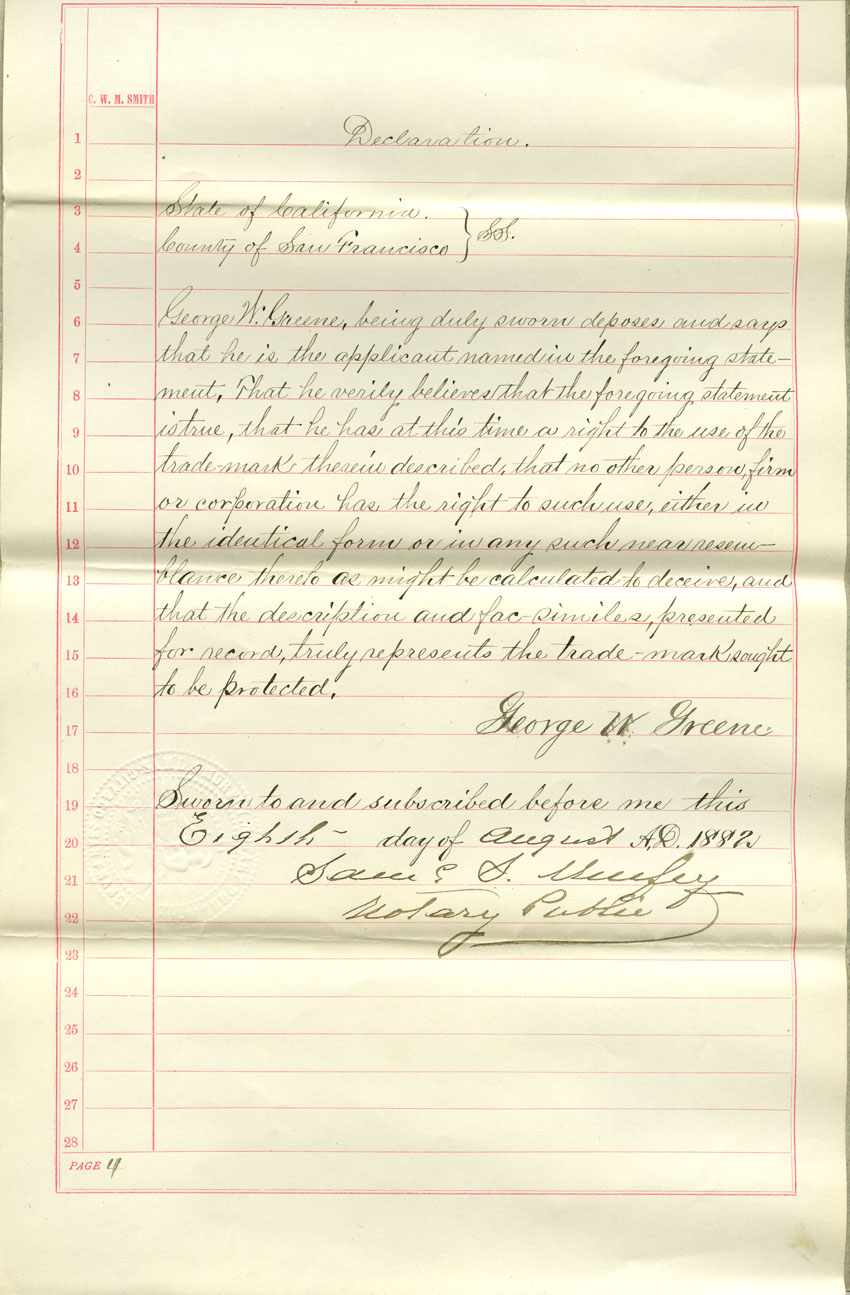 C. W. M. SMITH
1 Declaration.
2
3 State of California. } SS.
4 County of San Francisco
5
6 George W. Greene, being duly sworn deposes and says
7 that he is the applicant named in the foregoing state-
8 ment, That he verily believes that the foregoing statement
9 is true, that he has at this time a right to the use of the
10 trade-mark therein described, that no other person, firm
11 or corporation has the right to such use, either in
12 the identical form or in any such near resem-
13 blance thereto as might be calculated to deceive, and
14 that the description and fac-similes, presented
15 for record, truly represents the trade-mark sought
16 to be protected.
17 George W Greene
18
19 Sworn to and subscribed before me this
20 Eighth day of August A.D. 1882
21 Sam S.
22 Notary Public
23
24
25
26
27
28
PAGE 4